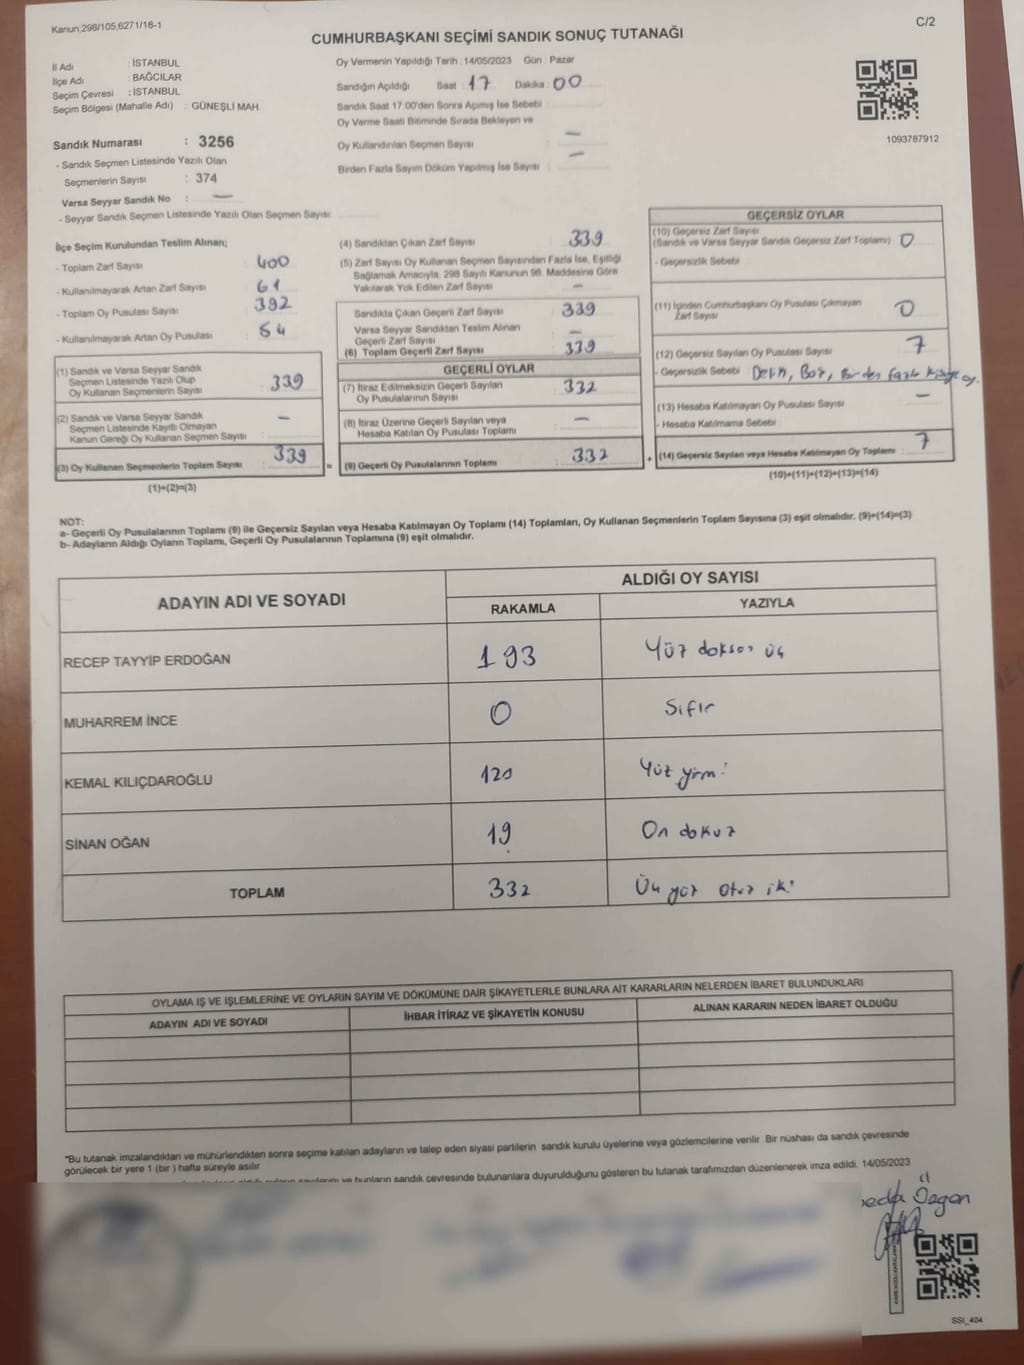 Kanun;298/105;6271/18-1
C/2
CUMHURBAŞKANI SEÇİMİ SANDIK SONUÇ TUTANAĞI
İl Adı : İSTANBUL
İlçe Adı : BAĞCILAR
Seçim Çevresi : İSTANBUL
Seçim Bölgesi (Mahalle Adı) : GÜNEŞLİ MAH.
Sandık Numarası : 3256
- Sandık Seçmen Listesinde Yazılı Olan
Seçmenlerin Sayısı : 374
Varsa Seyyar Sandık No : —
- Seyyar Sandık Seçmen Listesinde Yazılı Olan Seçmen Sayısı:
Oy Vermenin Yapıldığı Tarih : 14/05/2023 Gün : Pazar
Sandığın Açıldığı Saat : 17 Dakika : 00
Sandık Saat 17:00'den Sonra Açımış İse Sebebi :
Oy Verme Saati Bitiminde Sırada Bekleyen ve
Oy Kullandırılan Seçmen Sayısı : —
Birden Fazla Sayım Döküm Yapılmış İse Sayısı : —
1093787912
İlçe Seçim Kurulundan Teslim Alınan;
- Toplam Zarf Sayısı : 400
- Kullanılmayarak Artan Zarf Sayısı : 61
- Toplam Oy Pusulası Sayısı : 392
- Kullanılmayarak Artan Oy Pusulası : 54
(1) Sandık ve Varsa Seyyar Sandık
Seçmen Listesinde Yazılı Olup
Oy Kullanan Seçmenlerin Sayısı : 339
(2) Sandık ve Varsa Seyyar Sandık
Seçmen Listesinde Kayıtlı Olmayan
Kanun Gereği Oy Kullanan Seçmen Sayısı : —
(3) Oy Kullanan Seçmenlerin Toplam Sayısı : 339
(1)+(2)=(3)
(4) Sandıktan Çıkan Zarf Sayısı : 339
(5) Zarf Sayısı Oy Kullanan Seçmen Sayısından Fazla İse, Eşitliği
Sağlamak Amacıyla, 298 Sayılı Kanunun 98. Maddesine Göre
Yakılarak Yok Edilen Zarf Sayısı : —
Sandıkta Çıkan Geçerli Zarf Sayısı : 339
Varsa Seyyar Sandıktan Teslim Alınan
Geçerli Zarf Sayısı : —
(6) Toplam Geçerli Zarf Sayısı : 339
GEÇERLİ OYLAR
(7) İtiraz Edilmeksizin Geçerli Sayılan
Oy Pusulalarının Sayısı : 332
(8) İtiraz Üzerine Geçerli Sayılan veya
Hesaba Katılan Oy Pusulası Toplamı : —
= (9) Geçerli Oy Pusulalarının Toplamı : 332
GEÇERSİZ OYLAR
(10) Geçersiz Zarf Sayısı
(Sandık ve Varsa Seyyar Sandık Geçersiz Zarf Toplamı) : 0
- Geçersizlik Sebebi :
(11) İçinden Cumhurbaşkanı Oy Pusulası Çıkmayan
Zarf Sayısı : 0
(12) Geçersiz Sayılan Oy Pusulası Sayısı : 7
- Geçersizlik Sebebi : Boş, Birden fazla kişiye oy.
(13) Hesaba Katılmayan Oy Pusulası Sayısı : —
- Hesaba Katılmama Sebebi :
+ (14) Geçersiz Sayılan veya Hesaba Katılmayan Oy Toplamı : 7
(10)+(11)+(12)+(13)=(14)
NOT:
a- Geçerli Oy Pusulalarının Toplamı (9) ile Geçersiz Sayılan veya Hesaba Katılmayan Oy Toplamı (14) Toplamları, Oy Kullanan Seçmenlerin Toplam Sayısına (3) eşit olmalıdır. (9)+(14)=(3)
b- Adayların Aldığı Oyların Toplamı, Geçerli Oy Pusulalarının Toplamına (9) eşit olmalıdır.
ADAYIN ADI VE SOYADI
ALDIĞI OY SAYISI
RAKAMLA YAZIYLA
RECEP TAYYİP ERDOĞAN 193 Yüz doksan üç
MUHARREM İNCE 0 Sıfır
KEMAL KILIÇDAROĞLU 120 Yüz yirmi
SİNAN OĞAN 19 On dokuz
TOPLAM 332 Üç yüz otuz iki
OYLAMA İŞ VE İŞLEMLERİNE VE OYLARIN SAYIM VE DÖKÜMÜNE DAİR ŞİKAYETLERLE BUNLARA AİT KARARLARIN NELERDEN İBARET BULUNDUKLARI
ADAYIN ADI VE SOYADI İHBAR İTİRAZ VE ŞİKAYETİN KONUSU ALINAN KARARIN NEDEN İBARET OLDUĞU
*Bu tutanak imzalandıktan ve mühürlendikten sonra seçime katılan adayların ve talep eden siyasi partilerin sandık kurulu üyelerine veya gözlemcilerine verilir. Bir nüshası da sandık çevresinde
görülecek bir yere 1 (bir) hafta süreyle asılır.
ve bunların sandık çevresinde bulunanlara duyurulduğunu gösteren bu tutanak tarafımızdan düzenlenerek imza edildi. 14/05/2023
SSI_404